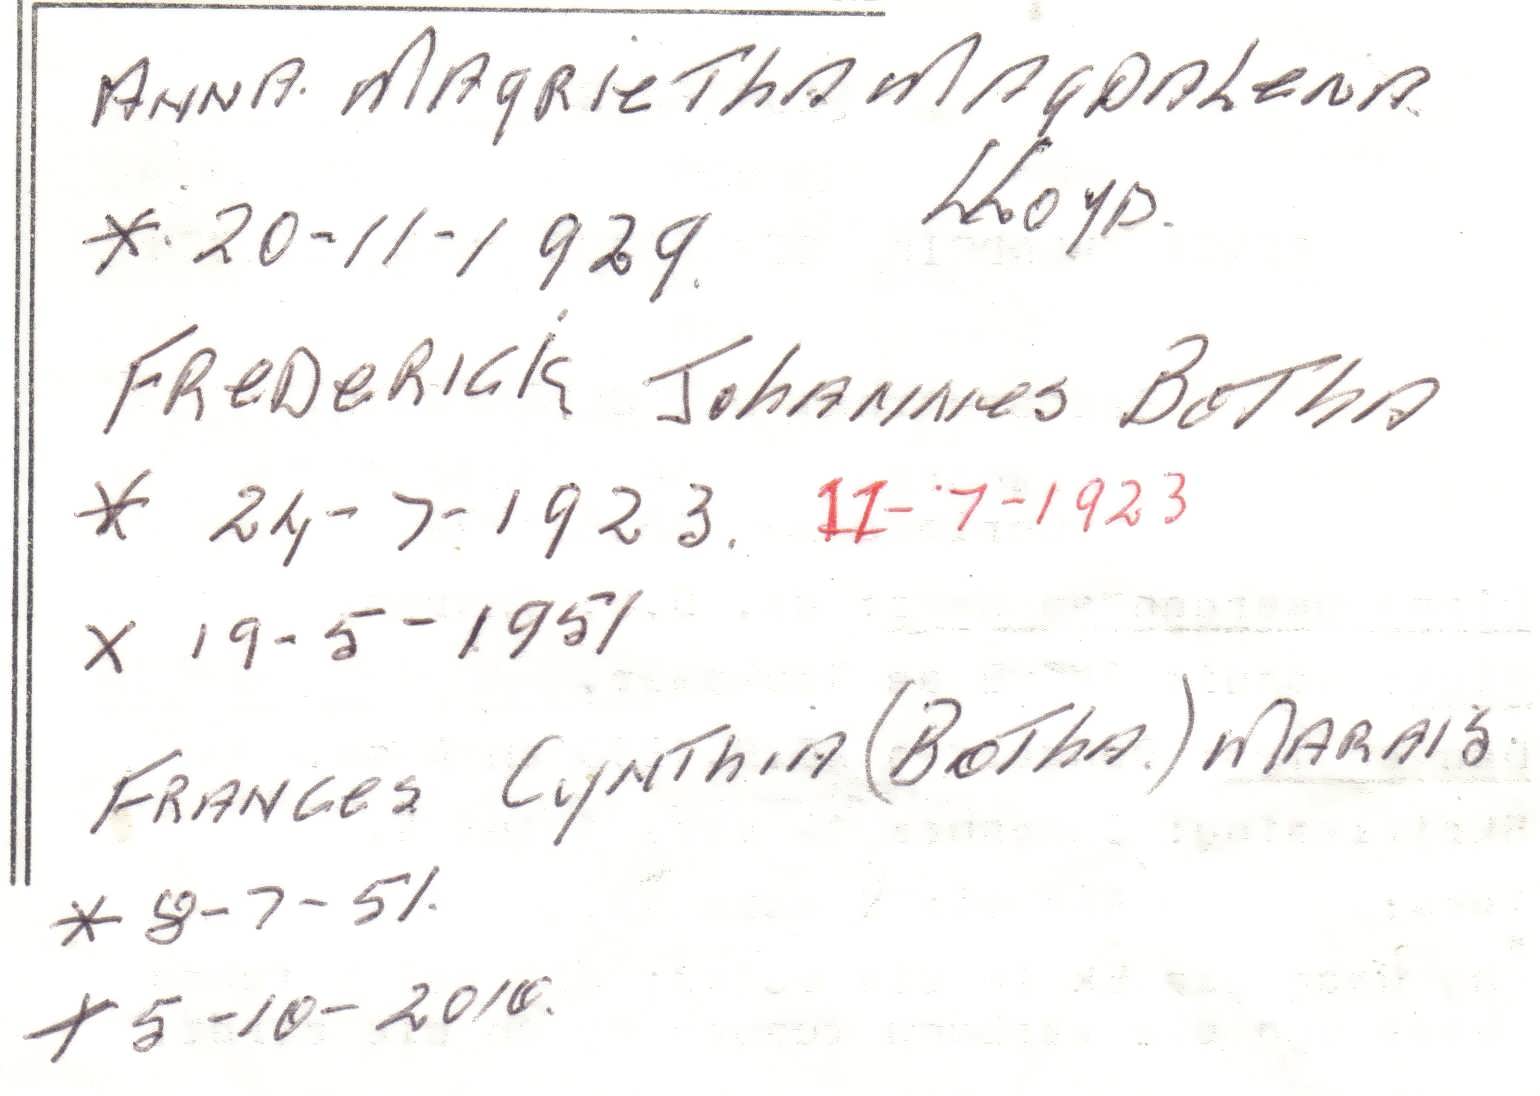 ANNA. MAGRIETHA MAGDALENA
LLOYD.
*. 20-11-1929.
FREDERICK JOHANNES BOTHA
* 24-7-1923. 11-7-1923
X 19-5-1951
FRANCES CYNTHIA (BOTHA.) MARAIS.
* 8-7-51.
+ 5-10-2010.